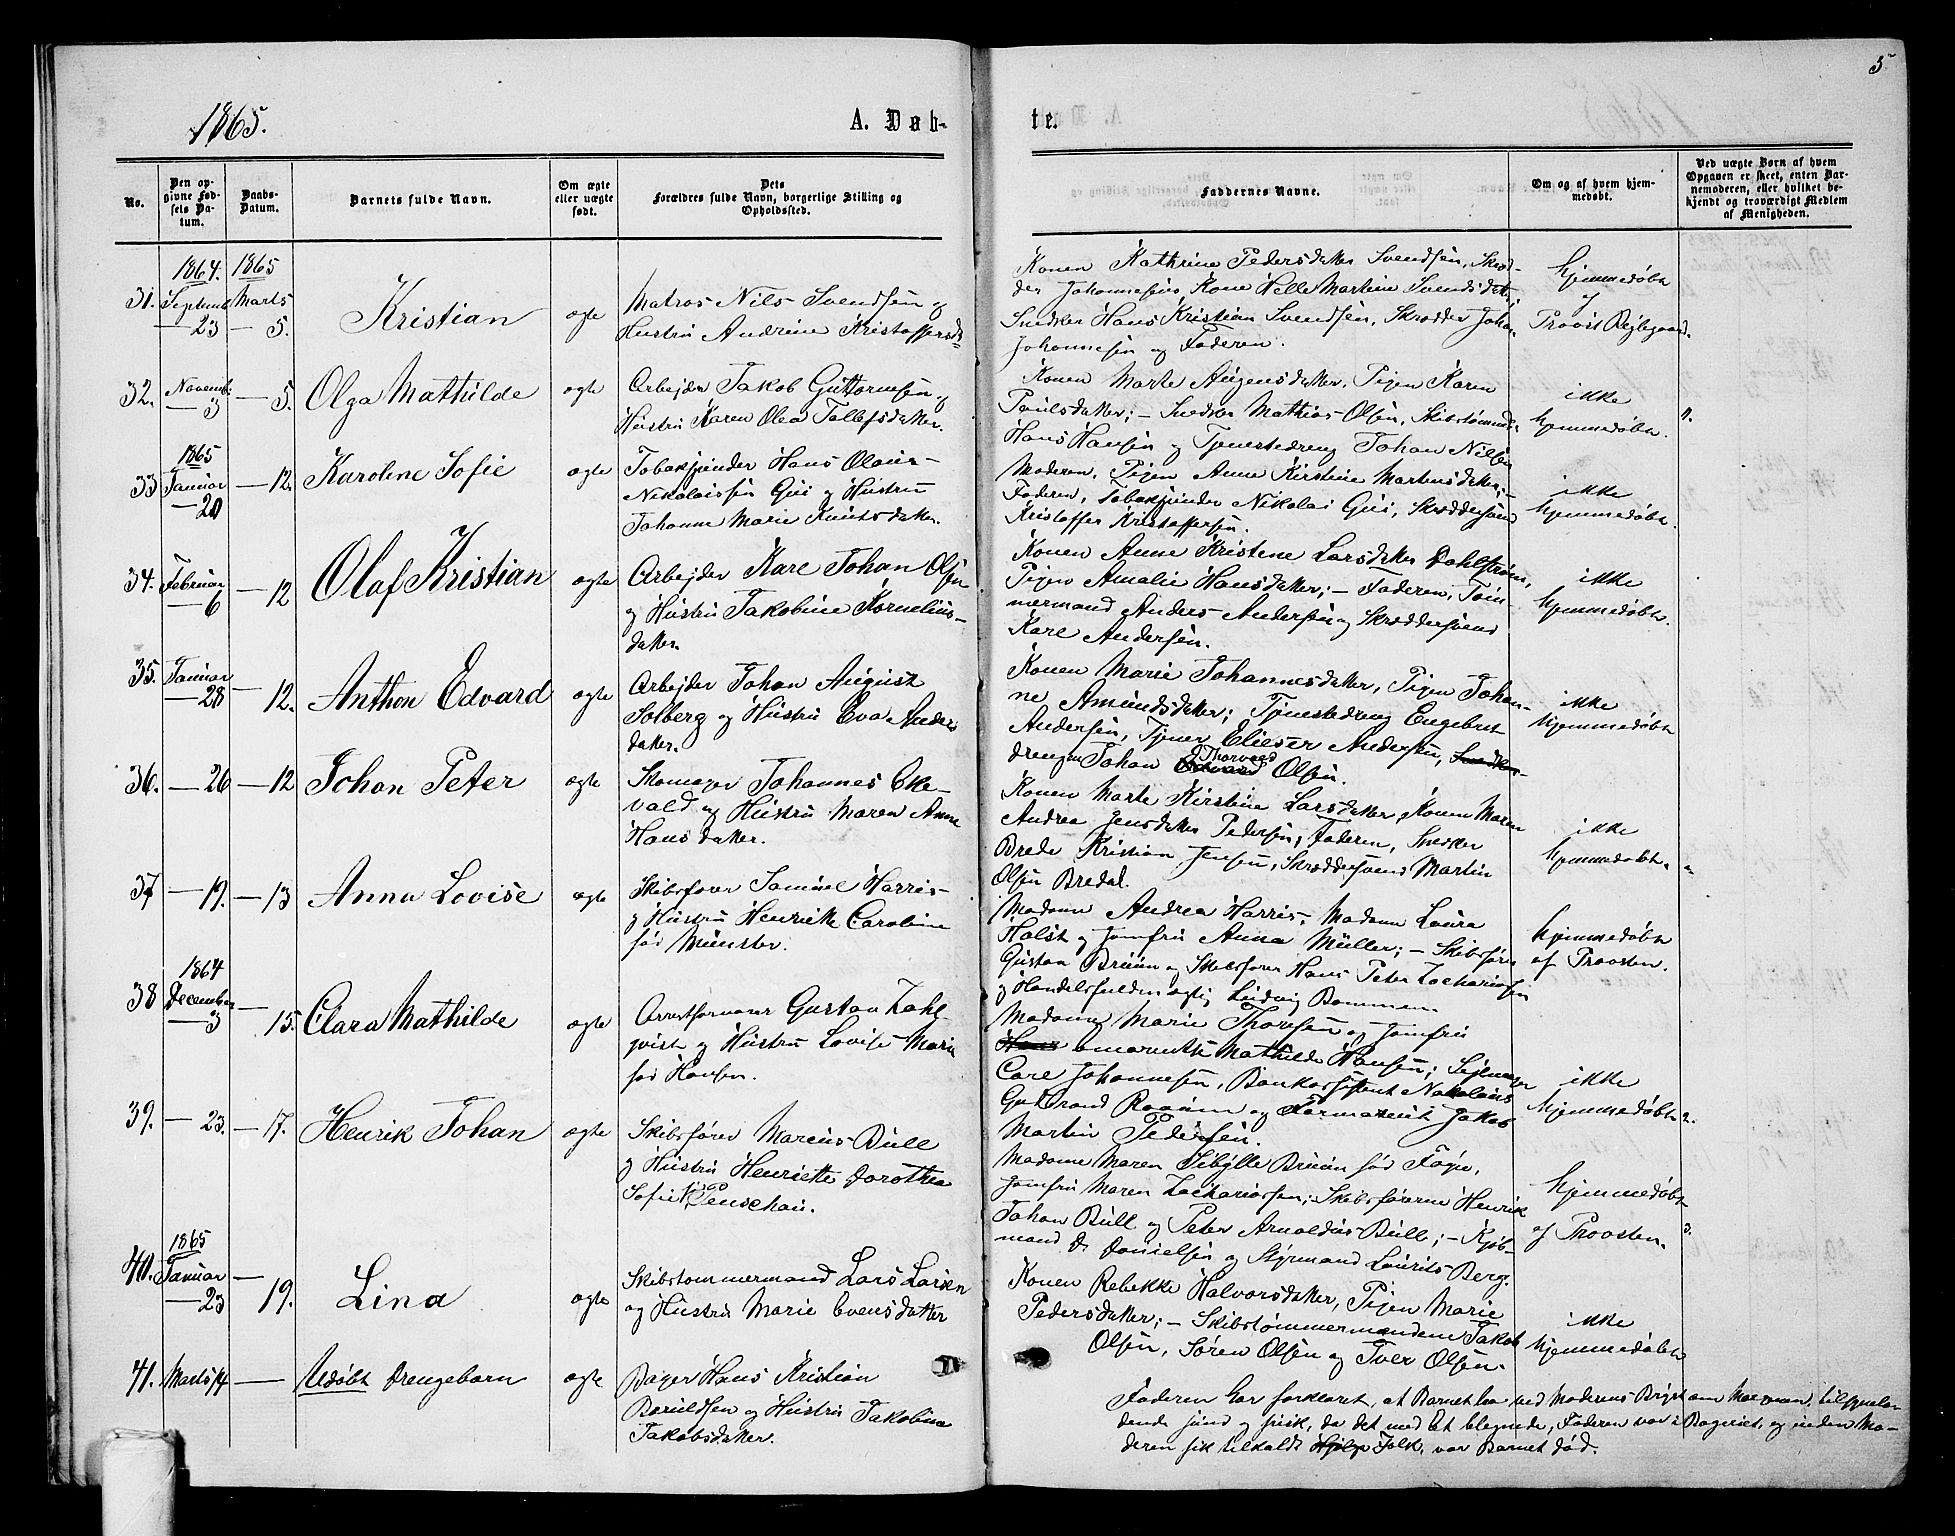 5
1865.
A. Døb-
te.
No.
Den op-
givne Fød-
sels Da-
tum.
Daabs-
Datum.
Barnets fulde Navn.
Om ægte
eller uægte
født.
Dets
Forældres fulde Navn, borgerlige Stilling og
Opholdssted.
Faddernes Navne.
Om og af hvem hjem-
medøbt.
Ved uægte Børn af hvem
Opgaven er skeet, enten Bar-
nemoderen, eller hvilket be-
kjendt og troværdigt Medlem
af Menigheden.
1864. 1865
31. Septemb. 23 Marts 5.
Kristian
ægte
Matros Nils Svendsen og
Hustru Andrine Kristoffersd.
Konen Kathrine Pedersdatter Svendsen, Skræd-
der Johannesens Kone Helle Martine Svendsdatt.,
Snedker Hans Kristian Svendsen, Skrædder Johan
Johannesen og Faderen.
hjemmedøbt
Provst Rejlegaard.
32. Novemb. 3 — 5.
Olga Mathilde
ægte
Arbejder Jakob Guttormsen og
Hustru Karen Olea Tollefsdatter.
Konen Marte Augensdatter, Pigen Karen
Poulsdatter; — Snedker Mathias Olsen, Skibstømmerm.
Hans Hansen og Tjenestedreng Johan Nilsen
ikke
hjemmedøbt.
1865
33 Januar 20 — 12.
Karoline Sofie
ægte
Tobakspinder Hans Olaus
Nikolaisen Gui og Hustru
Johanne Marie Knutsdatter.
Moderen, Pigen Anne Kirstine Martensdatter; —
Faderen, Tobakspinder Nikolai Gui, Skræddersvend
Kristoffer Kristoffersen.
ikke
hjemmedøbt.
34. Februar 6 — 12
Olaf Kristian
ægte
Arbejder Karl Johan Olsen
og Hustru Jakobine Kornelius-
datter.
Konen Anne Kristene Larsdatter Dahlstrøm,
Pigen Amalie Hansdatter; — Faderen, Tøm-
mermand Anders Andersen og Skræddersvend
Karl Andersen.
ikke
hjemmedøbt.
35. Januar 28 — 12.
Anthon Edvard
ægte
Arbejder Johan August
Solberg og Hustru Eva Anders
datter.
Konen Marie Johannesdatter, Pigen Johan-
ne Amundsdatter; Tjenestedreng Engebret
Andersen, Tjener Elieser Andersen,
drengen Johan Thorvald Olsen.
ikke
hjemmedøbt
36. — 26 — 12
Johan Peter
ægte
Skomager Johannes Eke-
vald og Hustru Maren Anne
Hansdatter.
Konen Marte Kirstine Larsdatter, Konen Maren
Andrea Jensdatter Pedersen; Faderen, Snedker
Brede Kristian Jensen, Skræddersvend Martin
Olsen Bredal.
ikke
hjemmedøbt.
37 — 19. — 13
Anna Lovise
ægte
Skibsfører Samuel Harris
og Hustru Henrikke Caroline
fød Münster.
Madame Andrea Harris, Madame Laura
Holst og Jomfru Anna Müller; — Skibsfører
Gustav Bruun og Skibsfører Hans Peter Zachariasen
og Handelsfuldmægtig Ludvig Bommen.
hjemmedøbt
af Provsten.
1864
38 December 3 — 15.
Clara Mathilde
ægte
Arrestforvarer Gustav Zahl-
qvist og Hustru Lovise Marie
fød Hansen.
Madame Marie Thoresen og Jomfru
Mathilde Hansen; Sejlmager
Carl Johannesen, Bankassistent Nikolaus
Gudbrand Raaum og Farmaceut Jakob
Martin Pedersen.
ikke
hjemmedøbt
39. — 23. — 17.
Henrik Johan
ægte
Skibsfører Marcus Bull
og Hustru Henriette Dorothea
Sofie Penschau.
Madame Maren Sibylle Bruun fød Føyn,
Jomfru Maren Zachariassen; Skibsførerne Henrik
Johan Bull og Peter Arnoldus Bull; — Kjøb-
mand D. Danielsen og Styrmand Laurits Berg.
hjemmedøbt
af Provsten.
1865
40. Januar 23 — 19.
Lina
ægte
Skibstømmermand Lars Larsen
og Hustru Marie Evensdatter
Konen Rebekke Halvorsdatter, Pigen Marie
Pedersdatter; — Skibstømmermændene Jakob
Olsen, Søren Olsen og Iver Olsen.
ikke
hjemmedøbt
41. Marts 14 —
Udøbt Drengebarn
ægte
Bager Hans Kristian
Beruldsen og Hustru Jakobine
Jakobsdatter.
Faderen har forklaret, at Barnet laa ved Moderens Bryst om Morgenen, tilsynela-
dende sund og frisk, da det med et blegnede, Faderen var i Bageriet, og inden Mo-
deren fik tilkaldt Folk, var Barnet død.